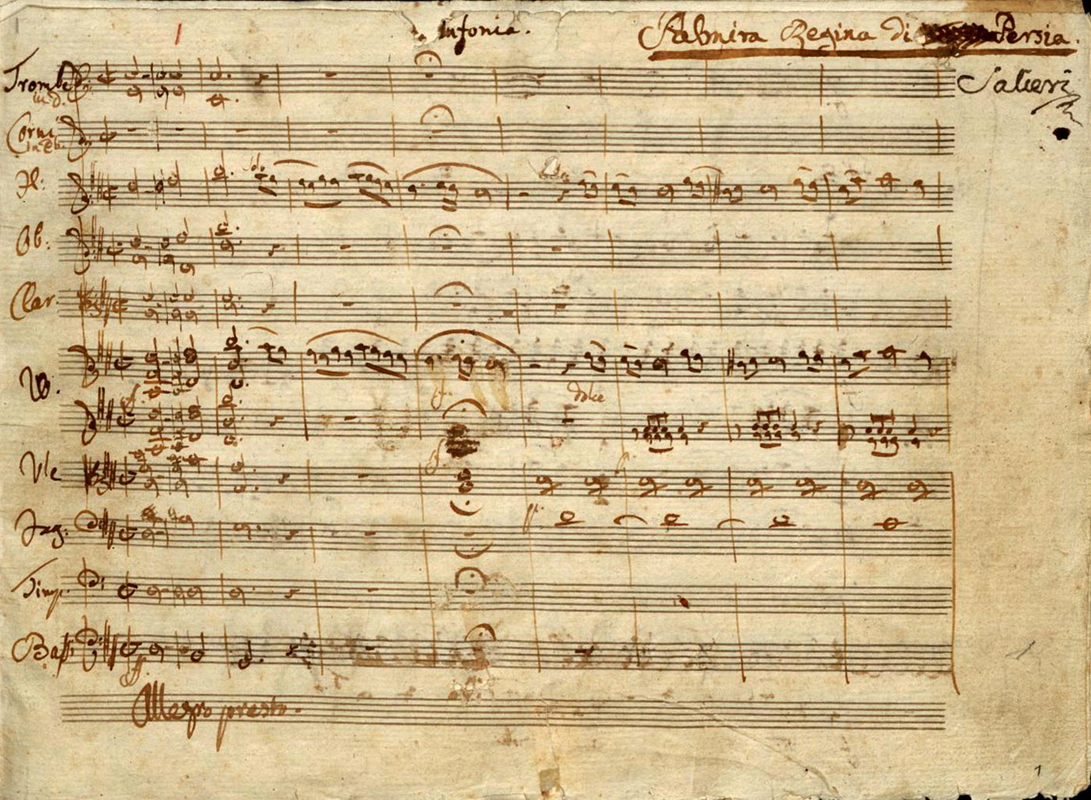 Sinfonia.
Palmira Regina di Persia.
Salieri
Trombe
in D.
Corni
Fl:
Ob:
Clar.
Vle
Fag:
Timp.
Bassi
dolce
Allegro presto.
1